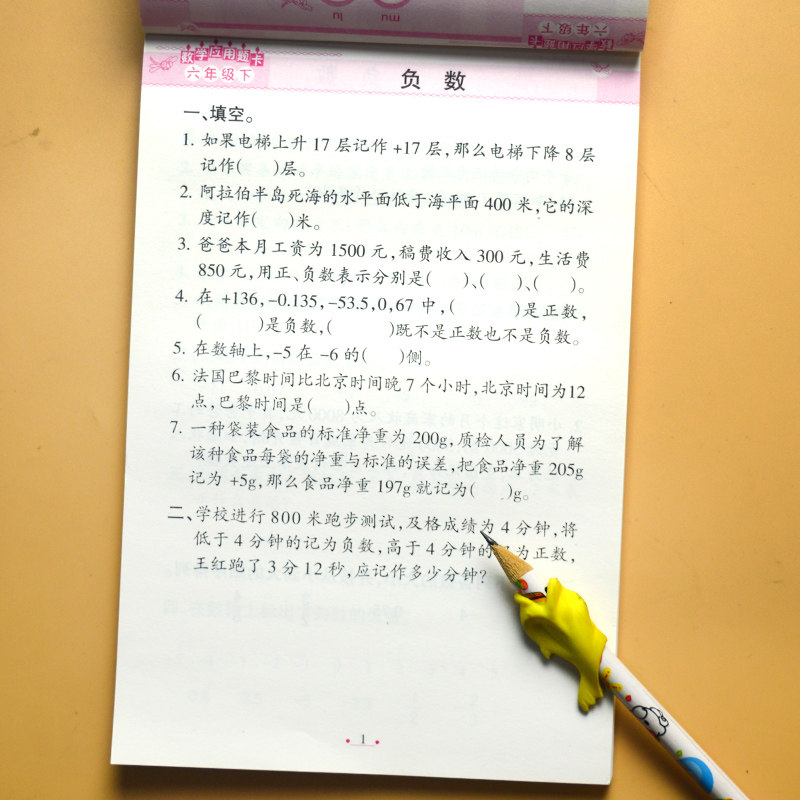 mu
lu
数学应用题卡
六年级下
数学应用题卡
六年级下
负 数
一、填空。
1. 如果电梯上升 17 层记作 +17 层,那么电梯下降 8 层
记作(    )层。
2. 阿拉伯半岛死海的水平面低于海平面 400 米,它的深
度记作(    )米。
3. 爸爸本月工资为 1500 元,稿费收入 300 元,生活费
850 元,用正、负数表示分别是(    )、(    )、(    )。
4. 在 +136,-0.135,-53.5,0,67 中,(        )是正数,
(        )是负数,(        )既不是正数也不是负数。
5. 在数轴上,-5 在 -6 的(    )侧。
6. 法国巴黎时间比北京时间晚 7 个小时,北京时间为12
点,巴黎时间是(    )点。
7. 一种袋装食品的标准净重为 200g,质检人员为了解
该种食品每袋的净重与标准的误差,把食品净重 205g
记为 +5g,那么食品净重 197g 就记为(    )g。
二、学校进行 800 米跑步测试,及格成绩为 4 分钟,将
低于 4 分钟的记为负数,高于 4 分钟的 为正数,
王红跑了 3 分 12 秒,应记作多少分钟?
1